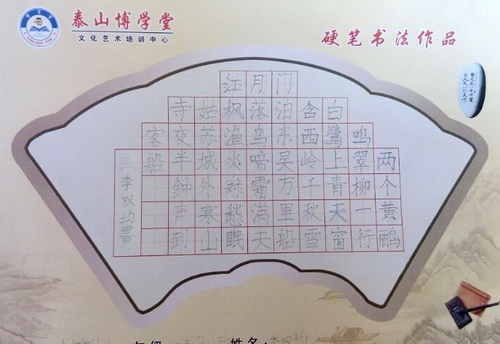 泰山博学堂
文化艺术培训中心
硬笔书法作品
两个黄鹂
鸣翠柳一行
白鹭上青天窗
含西岭千秋雪
门泊东吴万里船
月落乌啼霜满天
江枫渔火对愁眠
姑苏城外寒山
寺夜半钟声到
客船
三李双均書
年级 姓名: